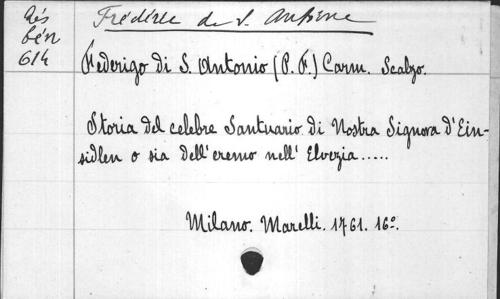 Rés
bén
614
Frédéric de S. Antoine
Federigo di S. Antonio (P. F.) Carm. Scalzo.
Storia del celebre Santuario di Nostra Signora d'Ein-
sidlen o sia dell' eremo nell' Elvezia.....
Milano. Marelli. 1761. 16º.